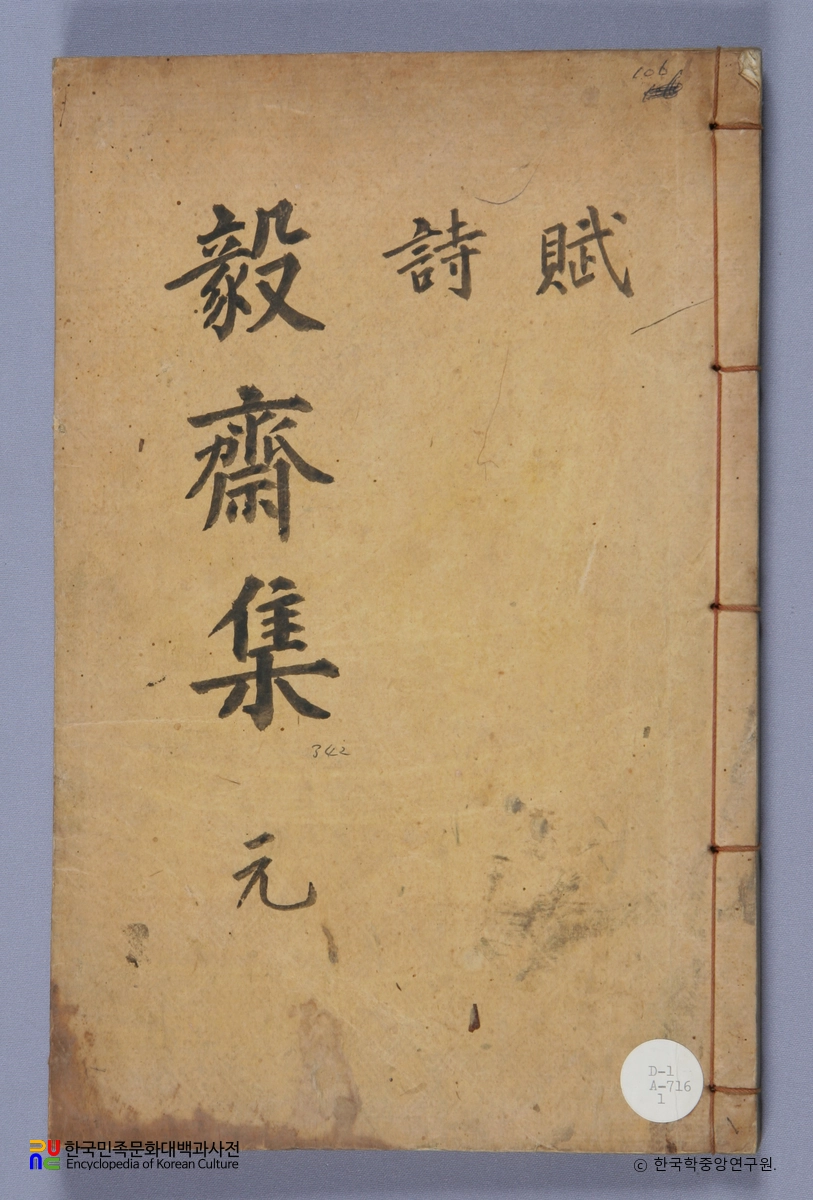 106
賦
詩
毅齋集 元
342
D-1
A-716
1
한국민족문화대백과사전
Encyclopedia of Korean Culture
© 한국학중앙연구원.